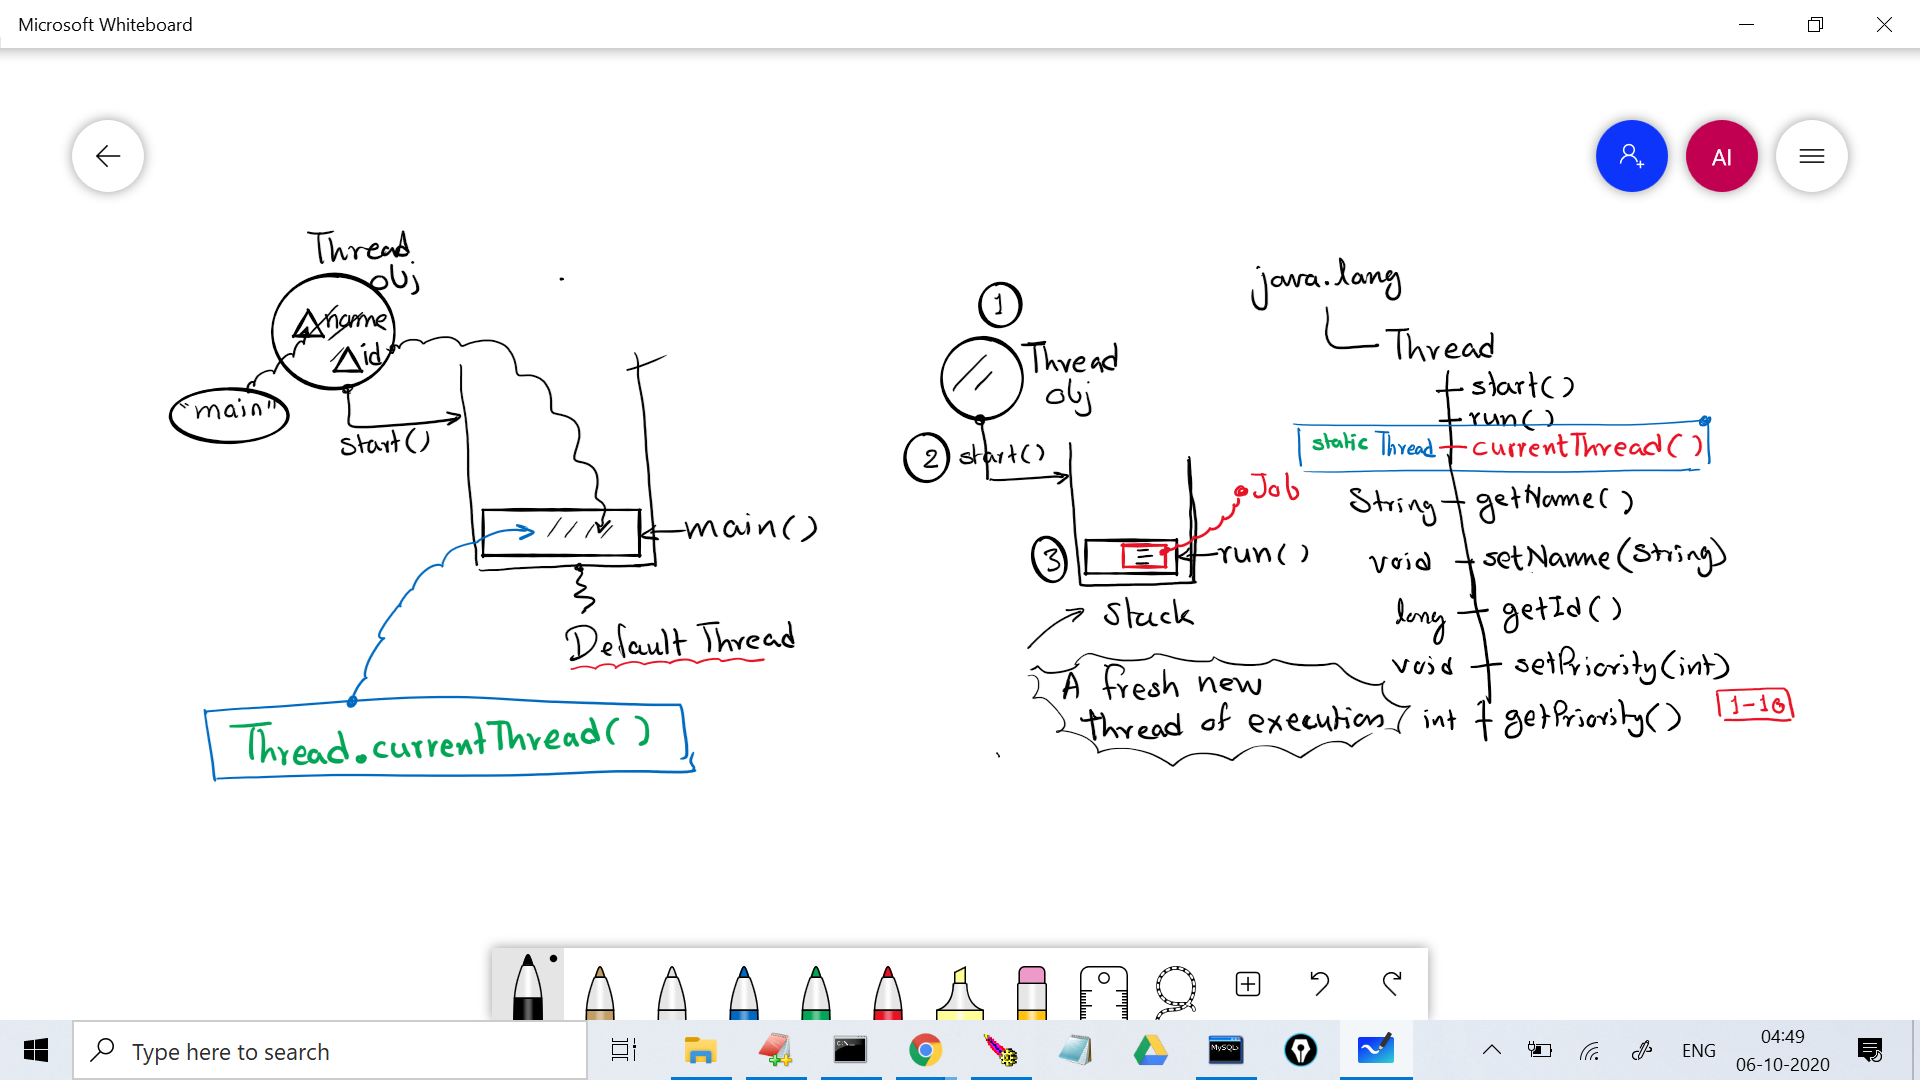 Microsoft Whiteboard
AI
Thread
obj
name
id
"main"
start()
main()
Default Thread
Thread.currentThread()
1
Thread
obj
2 start()
Job
3
run()
Stack
A fresh new
thread of execution
java.lang
Thread
start()
run()
static Thread currentThread()
String getName()
void setName(String)
long getId()
void setPriority(int)
int getPriority()
1-10
Type here to search
C:\
MySQL
ENG
04:49
06-10-2020